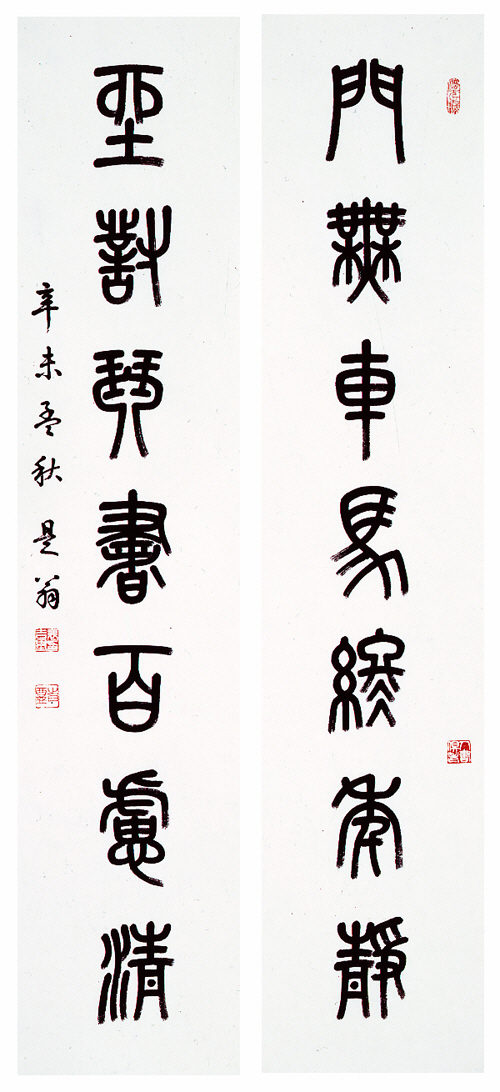 門無車馬終年靜
坐對琴書百慮清
辛未孟秋 是翁